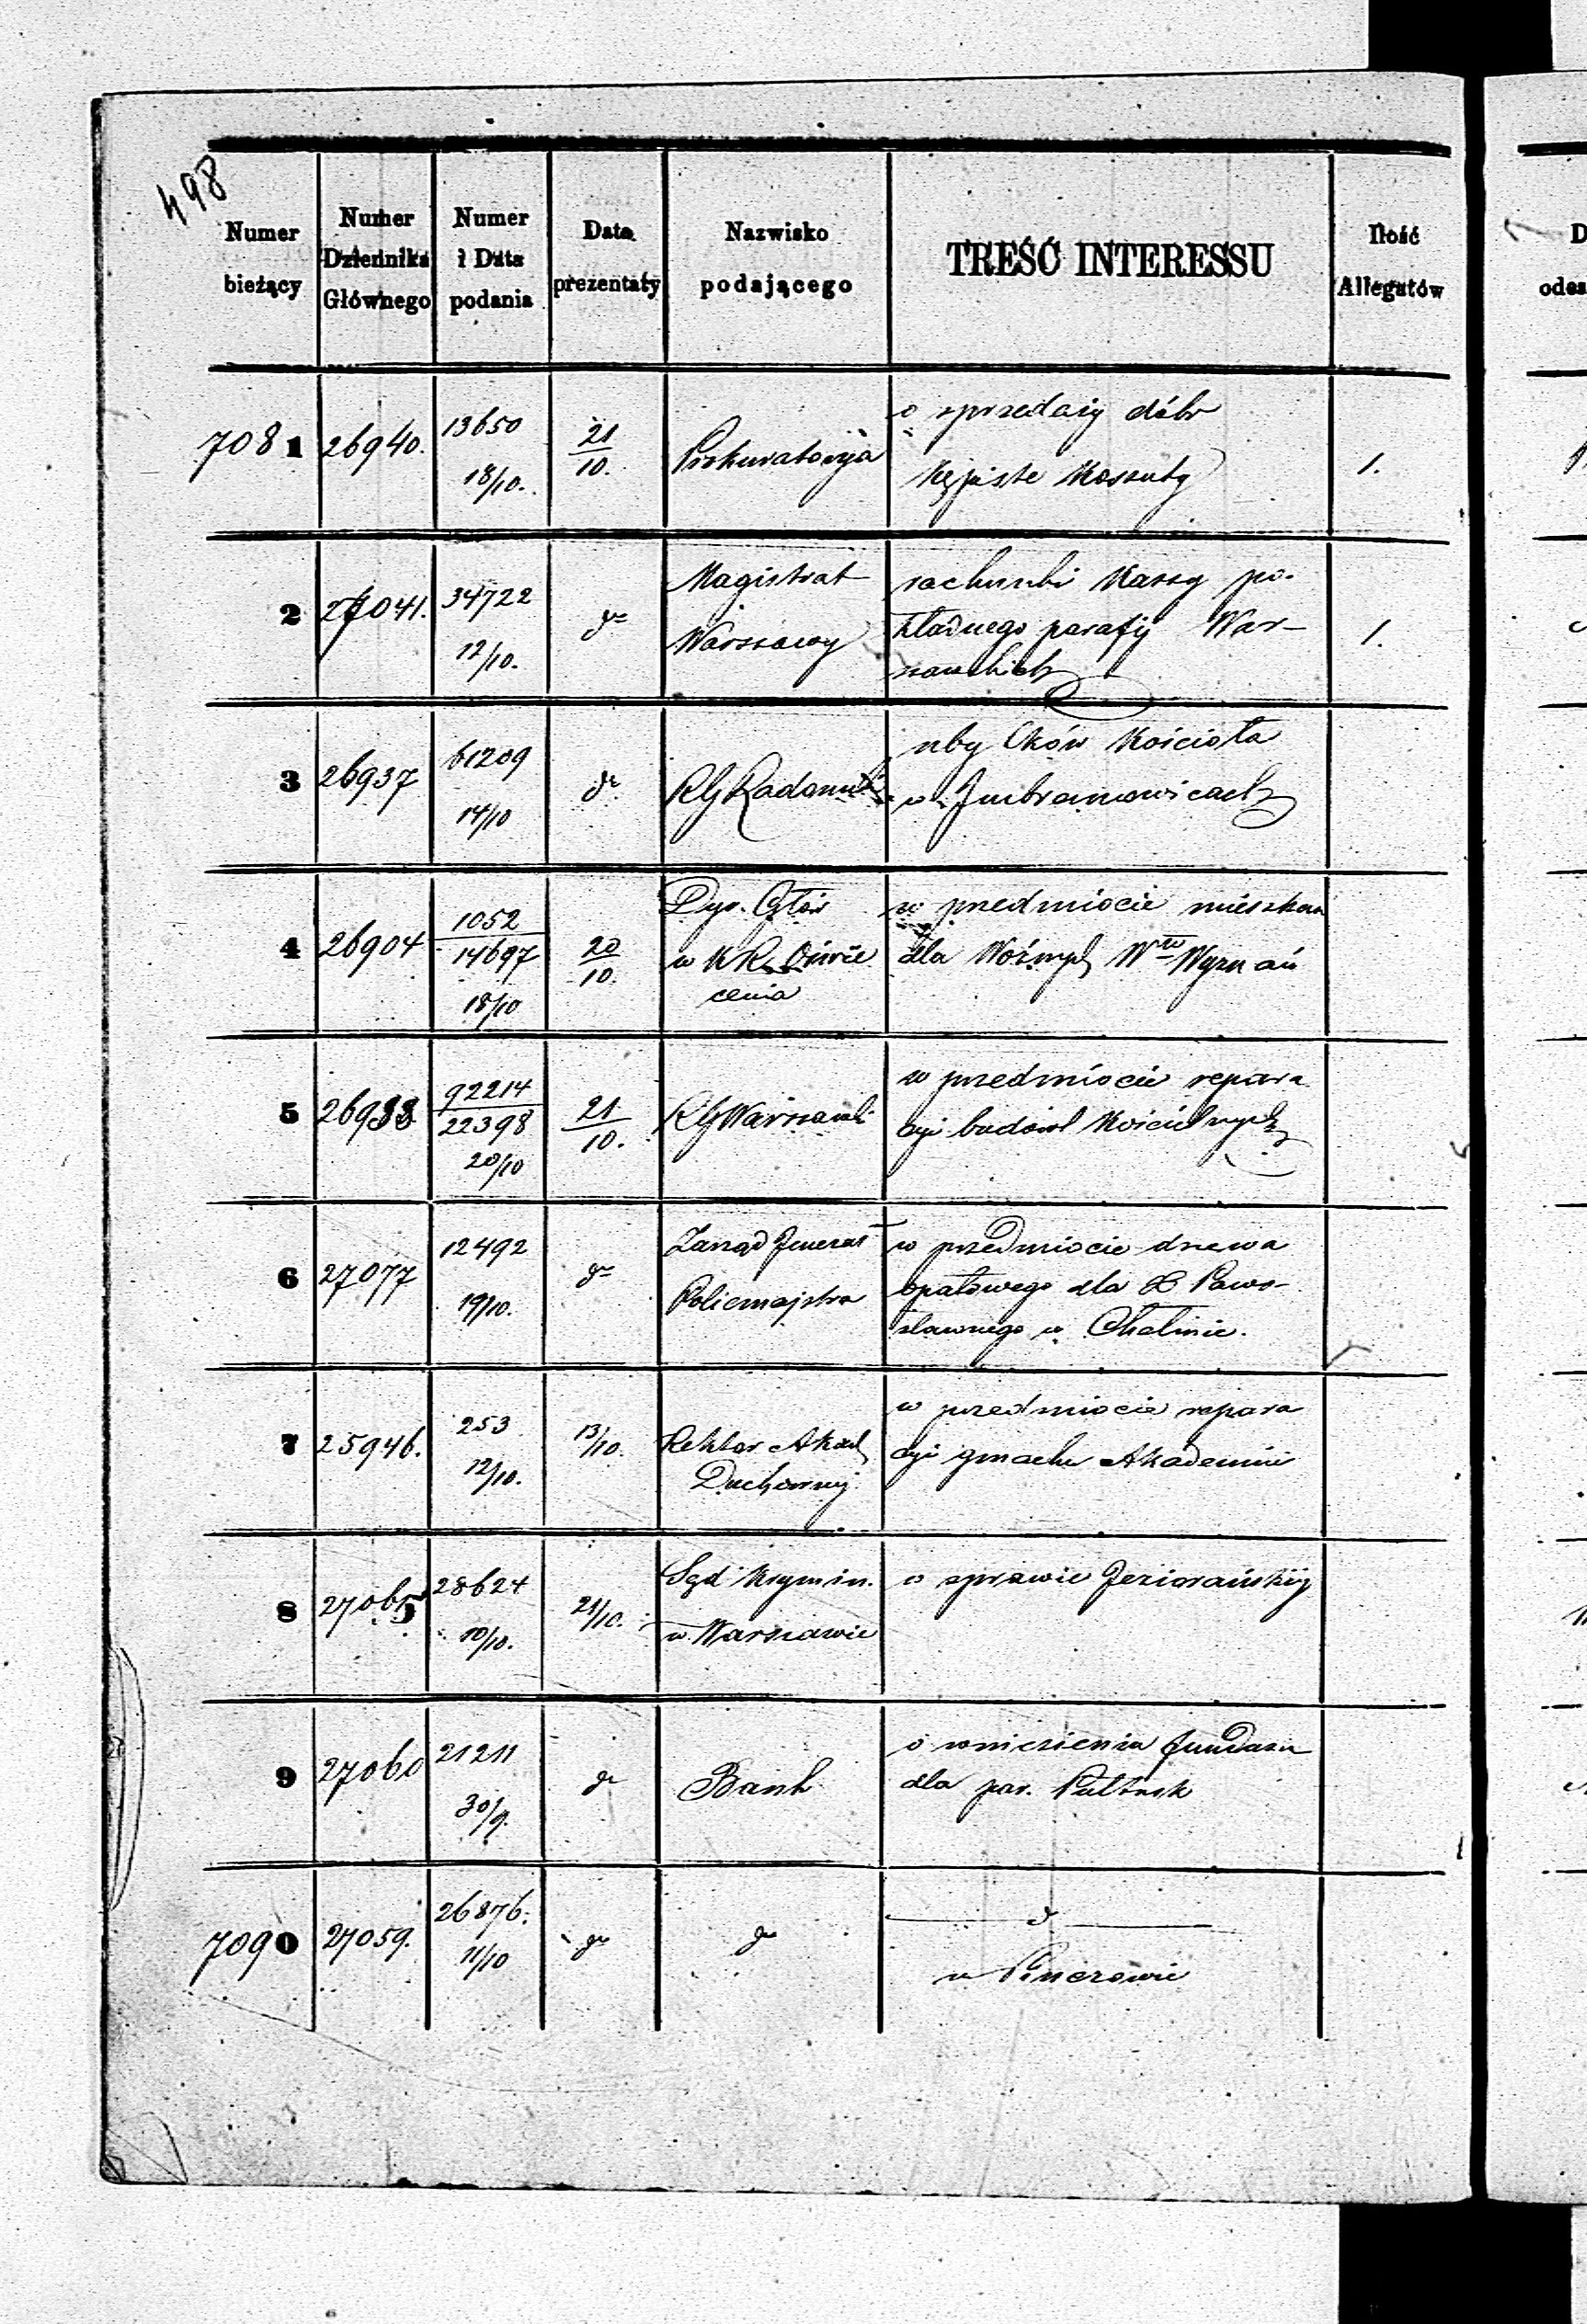 498
Numer bieżący
Numer Dziennika Głównego
Numer i Data podania
Data prezentaty
Nazwisko podającego
TREŚĆ INTERESSU
Ilość Allegatów
7081 26940. 13650 18/10. 21/10. Prokuratorya o sprzedaży dóbr 1.
Kossuty
2 27041. 34722 12/10. do Magistrat Warszawy rachunki Kassy po-
kładnego parafij War-
szawskich 1.
3 26937 61209 14/10 do RG Radomski
w Imbramowicach
Kościoła
4 26904 1052 14697 18/10 20/10. Dyr. Głów w KR Oświe
cenia
w przedmiocie mieszkań
dla Woźnych Wyznań
5 26933 92214 22398 20/10 21/10. RG Warszawski w przedmiocie repara
cyi budowl Kościelnych
6 27077 12492 19/10. do Zarząd Jenerał
Policmajstra
w przedmiocie drzewa
opałowego dla
sławnego w Chełmie.
7 25946. 253 12/10. 13/10. Rektor Akad
Duchownej
w przedmiocie repara
cyi gmachu Akademii
8 27065 28624 10/10. 21/10. Sąd Krymin.
w Warszawie
o sprawie Jeziorańskiej
9 27060 21211 30/9. do Bank o wniesieniu funduszu
dla par. Pułtusk
7090 27059. 26876. 11/10 do do do
w Pinczowie